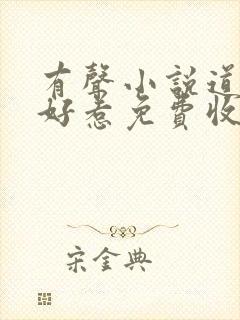 有聲小說道
好惹免費收
宋金典